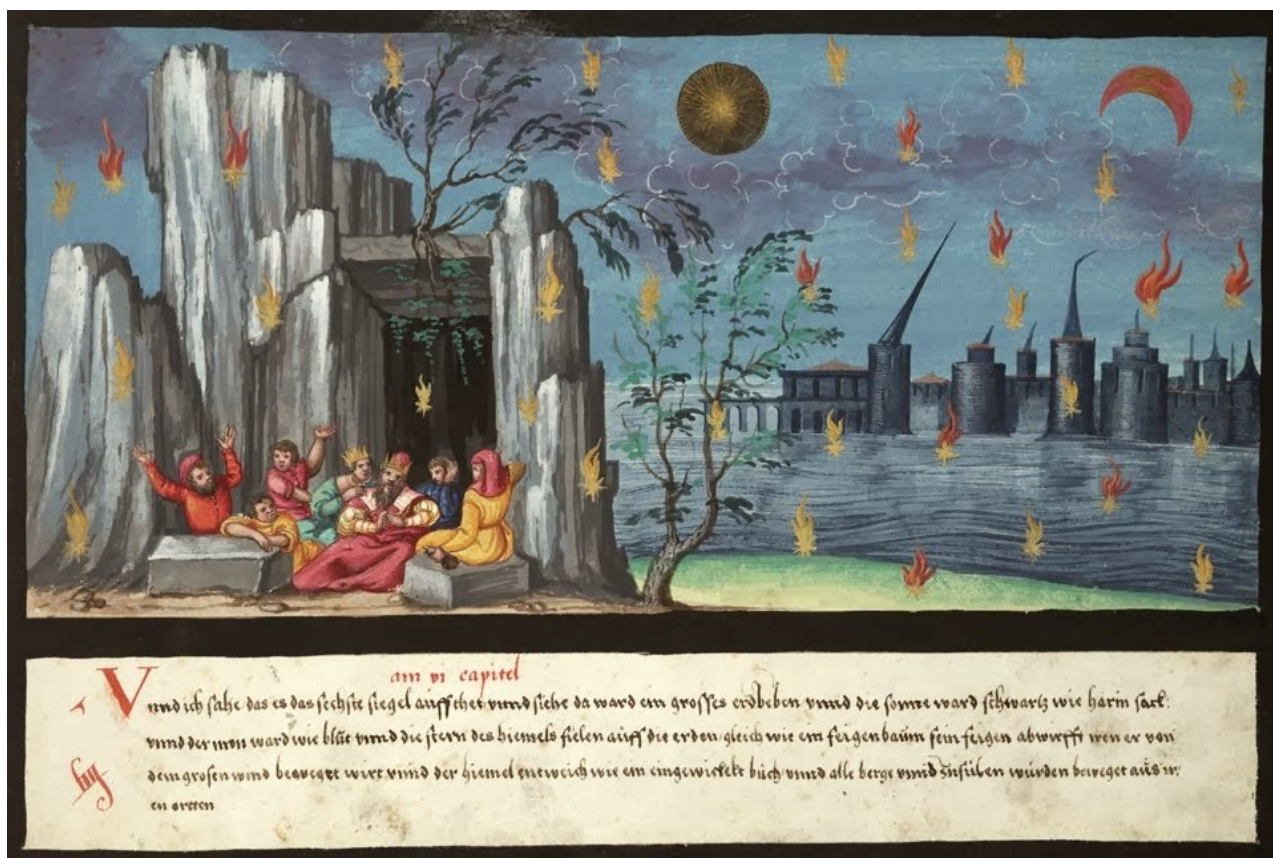 am vi capitel
Vnnd ich sahe das es das sechste siegel auffthet vnnd siehe da ward ein grosses erdbeben vnnd die sonne ward schwartz wie harin sack:
vnnd der mon ward wie blüt vnnd die stern des hiemels fielen aüff die erden gleich wie ein feigenbaüm sein feigen abwirfft wen er von
dem grosen wind beweget wirt vnnd der hiemel entweich wie ein eingewickelt büch vnnd alle berge vnnd würden beweget aüs ir
en ortten